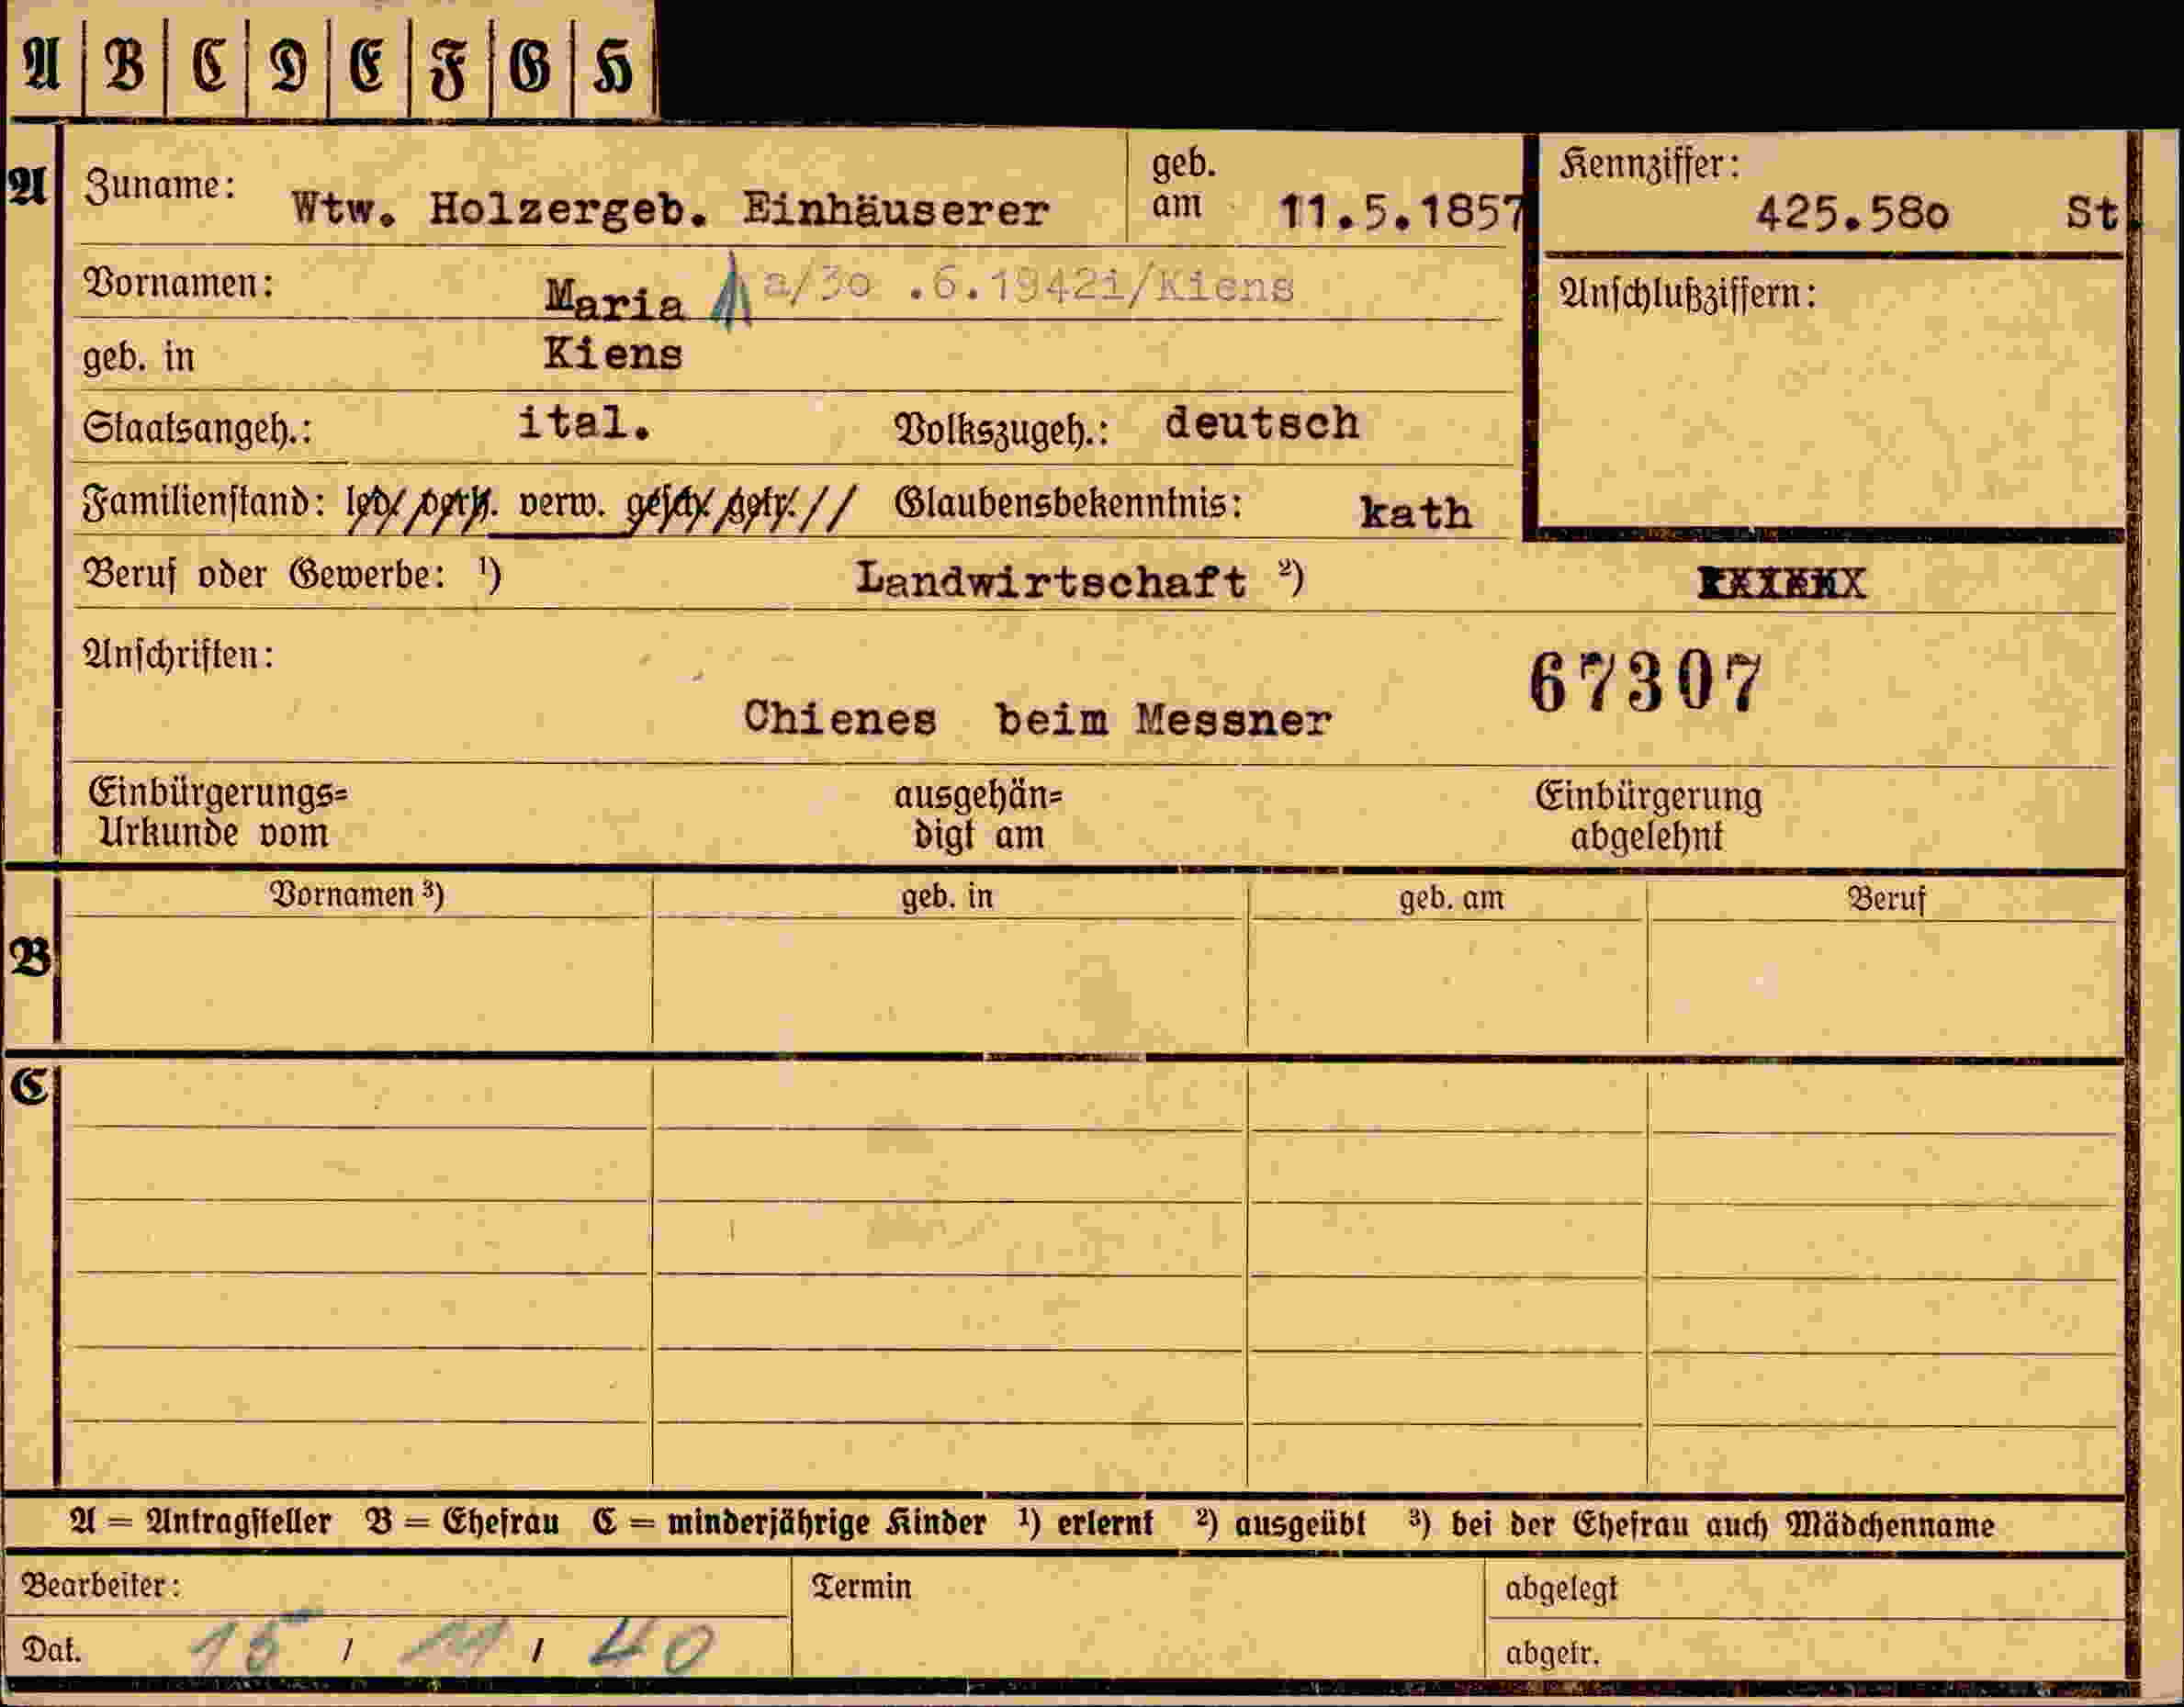 A B C D E F G H
A Zuname: Wtw. Holzergeb. Einhäuserer geb. am 11.5.1857 Kennziffer: 425.58o St.
Vornamen: Maria a/3o .6.1942i/Kiens Anschlußziffern:
geb. in Kiens
Staatsangeh.: ital. Volkszugeh.: deutsch
Familienstand: led. verh. verw. gesch. getr. // Glaubensbekenntnis: kath
Beruf oder Gewerbe: ¹) Landwirtschaft ²)
Anschriften: 67307
Chienes beim Messner
Einbürgerungs= ausgehän= Einbürgerung
Urkunde vom digt am abgelehnt
Vornamen ³) geb. in geb. am Beruf
B
C
A = Antragsteller B = Ehefrau C = minderjährige Kinder ¹) erlernt ²) ausgeübt ³) bei der Ehefrau auch Mädchenname
Bearbeiter: Termin abgelegt
Dat. 15 / 11 / 40 abgetr.